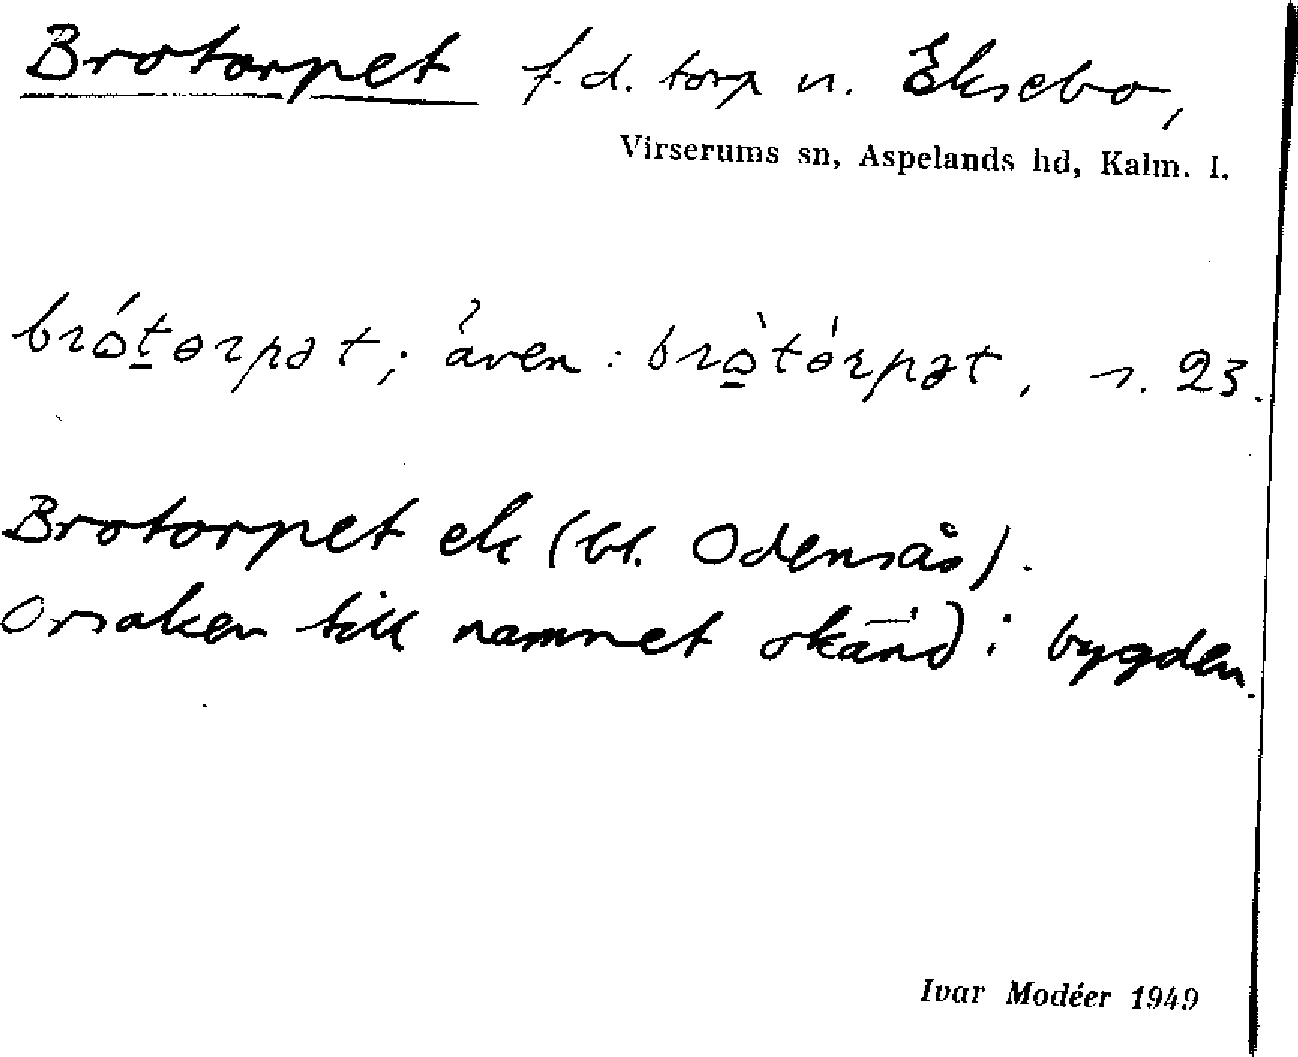 Brotorpet f.d. torp u. Eksebo,
Virserums sn, Aspelands hd, Kalm. l.
brótorpət; även: bròtórpət, s. 23.
Brotorpet ek (bl. Odensås).
Orsaken till namnet okänd i bygden.
Ivar Modéer 1949